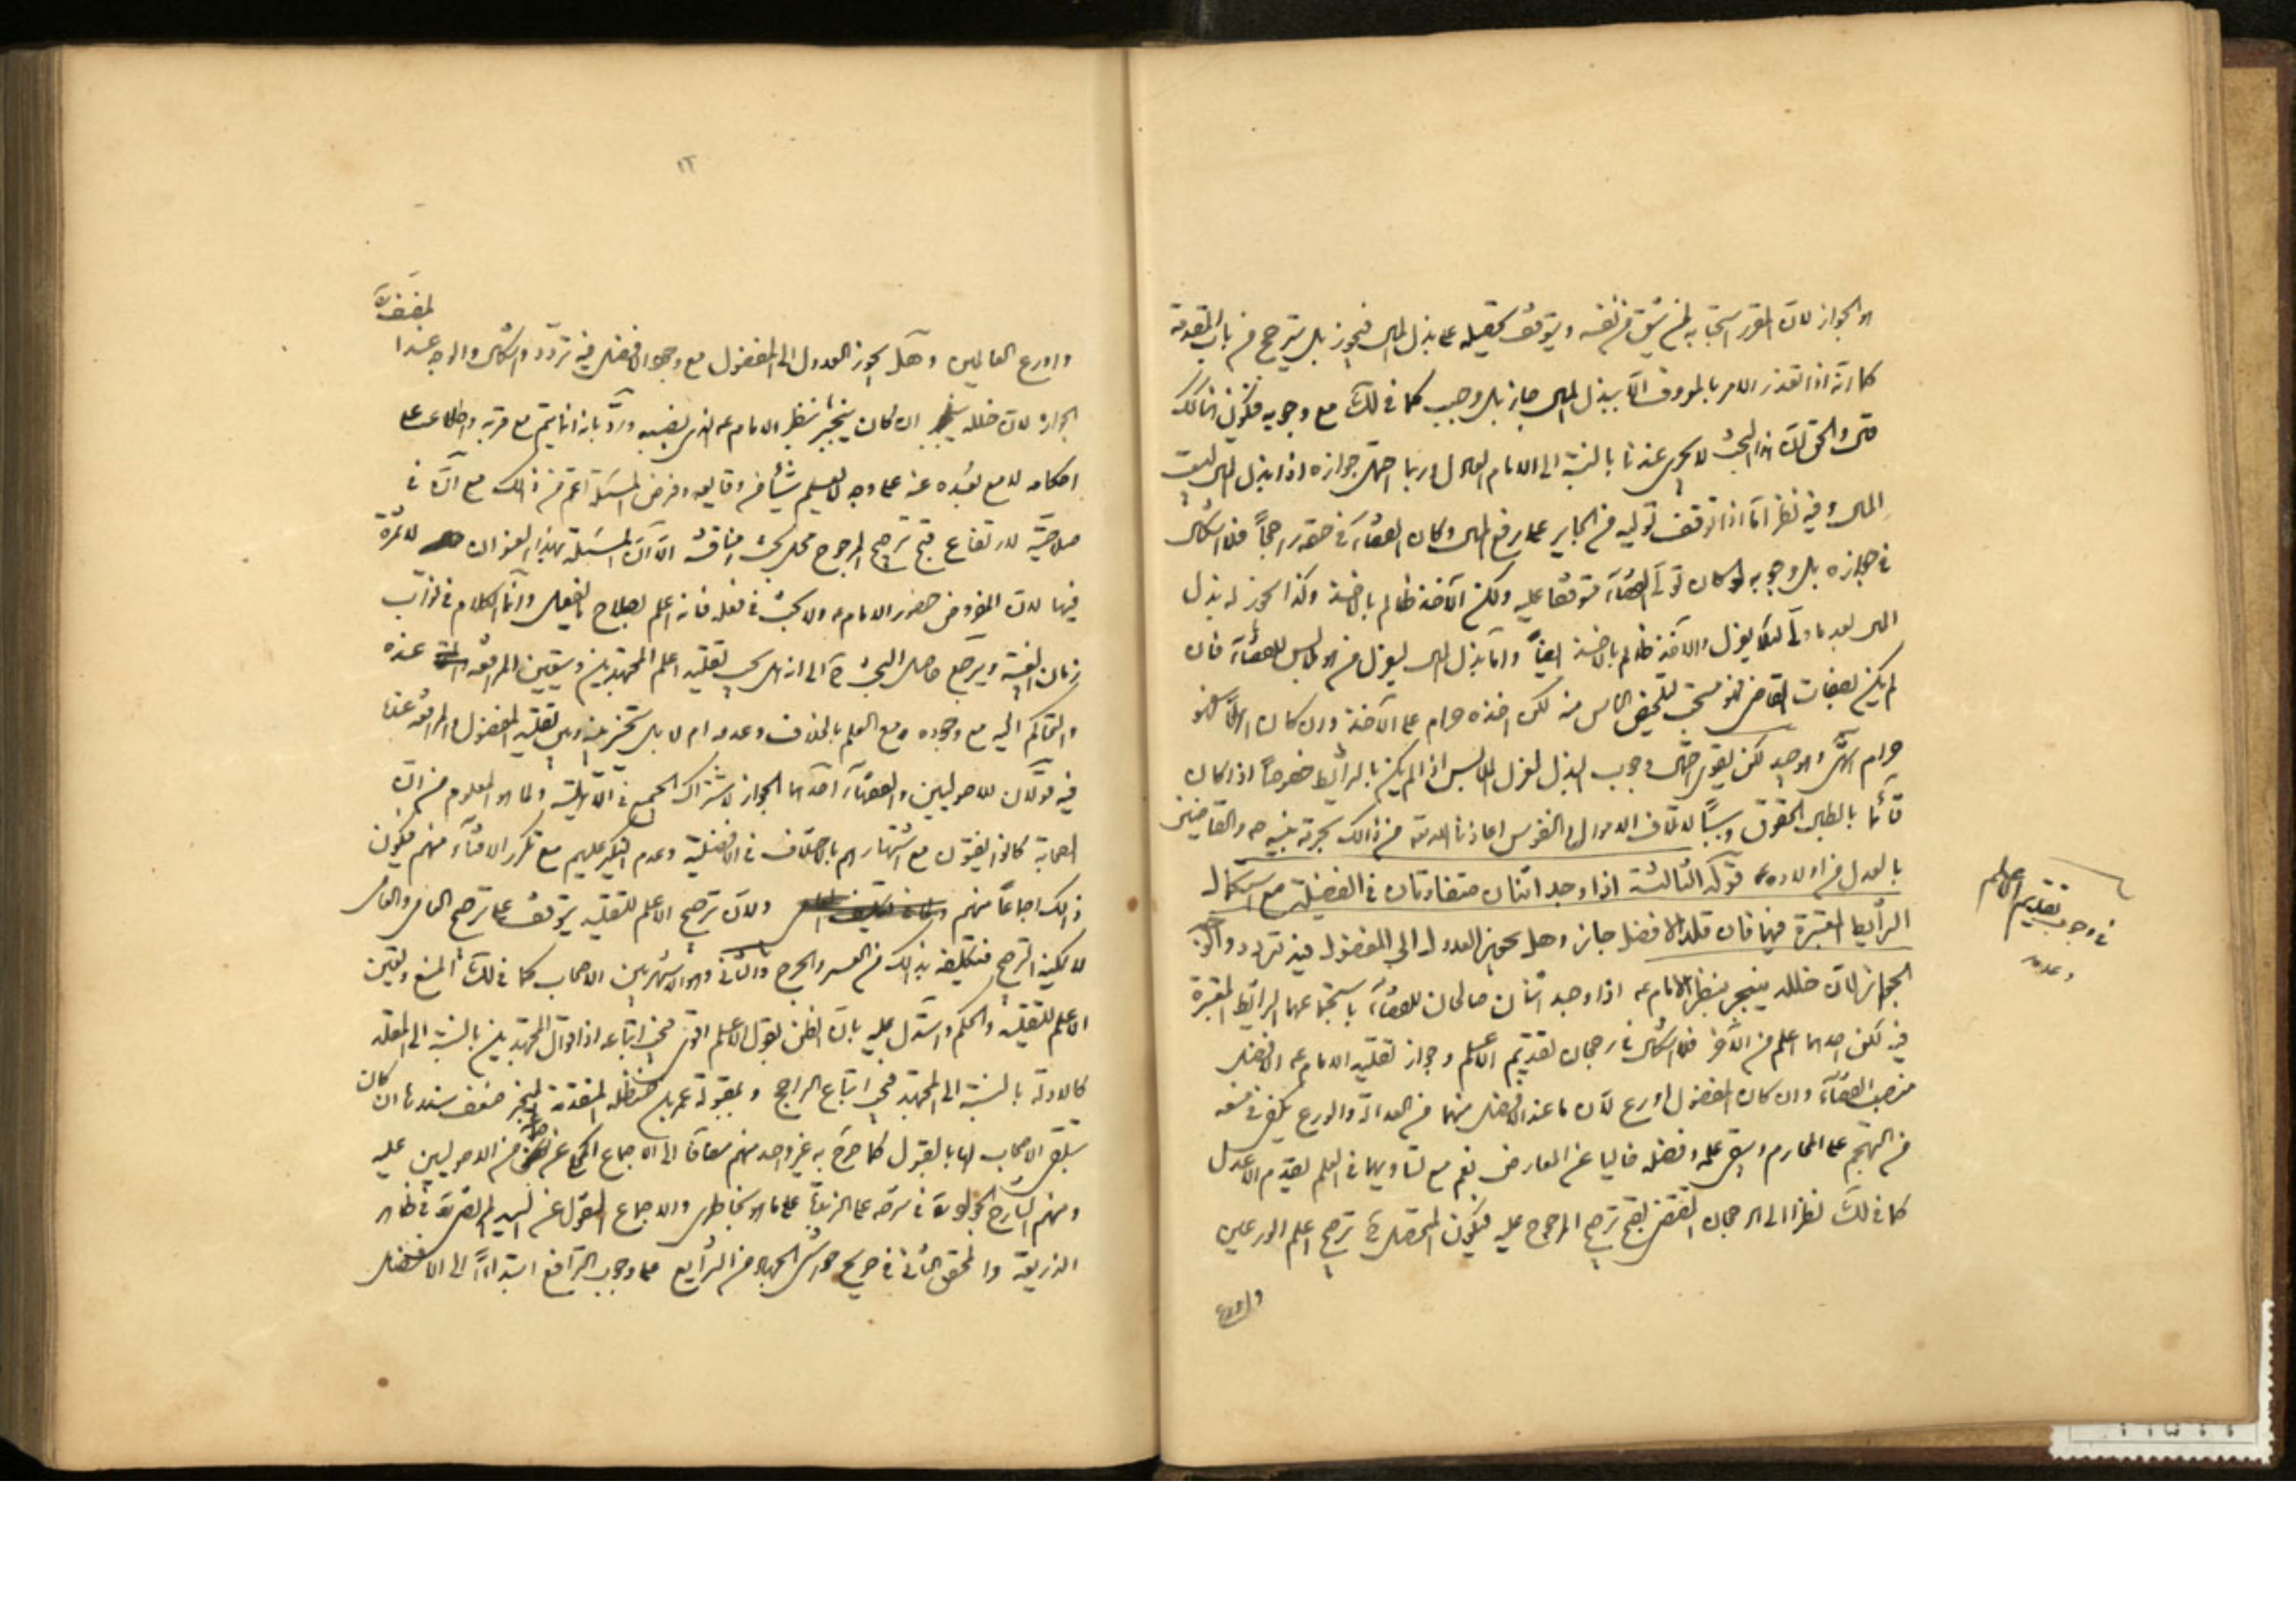 والجواز لان المقرر استحبابه لمن يثق من نفسه ويتوقف تحصيله على بذل المال فيجوز بل يترجح من باب المقدمة
كما انه اذا تعذر الامر بالمعروف الا ببذل المال جاز بل وجب كما في لك مع وجوبه فيكون هنا كذلك
والحق ان هذا البحث لا يجرى عندنا بالنسبة الى الامام العادل وربما احتمل جوازه اذا بذل لبيت
المال وفيه نظر اما اذا توقف توليه من الجاير على دفع المال وكان القضاء في حقه راجحاً فلا اشكال
في جوازه بل وجوبه لو كان تولى القضاء متوقفا عليه ولكن الآخذ ظالم باخذه وكذا يجوز له بذل
المال بعد ما ولى لئلا يعزل والآخذ ظالم باخذه ايضاً واما بذل المال ليعزل من هو لابس للقضاء فان
لم يكن بصفات القاضي فهو مستحب لتخليص الناس منه لكن اخذه حرام على الآخذ وان كان اهلاً فهو
حرام لكن يقوى وجوب البذل لعزل اللابس اذا لم يكن بالشرايط خصوصاً اذا كان
قائما بابطال الحقوق وسبباً لاتلاف الاموال والنفوس اعاذنا الله من ذلك بحرمة نبيه ص والقاضين
بالعدل من اولاده ع قوله الثالثة اذا وجد اثنان متفاوتان في الفضيلة مع استكمال
الشرايط المعتبرة فيهما فان قلد الافضل جاز وهل يجوز العدول الى المفضول فيه تردد والوجه
الجواز لان خلله ينجبر بنظر الامام ع اذا وجد اثنان صالحان للقضاء باستجماعهما الشرايط المعتبرة
فيه لكن احدهما اعلم من الآخر فلا اشكال في رجحان تقديم الاعلم وجواز تقليد الامام ع الافضل
منصب القضاء وان كان المفضول اورع لان ما عند الافضل منهما من العدالة والورع يكفي في منعه
من التهجم على المحارم ويبقى علمه وفضله خاليا عن المعارض نعم مع تساويهما في العلم يقدم الاعدل
كما في لك نظرا الى الرجحان المقتضى لقبح ترجيح المرجوح عليه فيكون المتحصل ح ترجيح اعلم الورعين
واورع
في وجوب تقديم الاعلم
وعدمه
١٢
واورع العالمين وهل يجوز العدول الى المفضول مع وجود الافضل فيه تردد واشكال والوجه عند المصنف ره
الجواز لان خلله ان كان ينجبر بنظر الامام ع الذي نصبه ورد بانه انما يتم مع قربه واطلاعه على
احكامه لا مع بعده عنه على وجه لا يعلم شيئا من وقايعه وفرض المسئلة اعم من ذلك مع ان في
صلاحيته لارتفاع قبح ترجيح المرجوح محل بحث ومناقشة الا ان المسئلة بهذا العنوان لا ثمرة
فيها لان المفروض حضور الامام ع ولا بحث في فعله فانه اعلم بصلاح ما يفعل وانما الكلام في نواب
زمان الغيبة ويرجع حاصل البحث ح الى انه هل يجب تقليد اعلم المجتهدين ويتعين المرافعة عنده
والتحاكم اليه مع وجوده ومع العلم بالخلاف وعدمه ام لا بل يتخير بينه وبين تقليد المفضول والمرافعة عنده
فيه قولان للاصوليين والفقهاء احدهما الجواز لاشتراك الجميع في الاهلية ولما هو المعلوم من ان
الصحابة كانوا يفتون مع اشتهارهم بالاختلاف في الافضلية وعدم النكير عليهم مع تكرر الافتاء منهم فيكون
ذلك اجماعاً منهم ولان ترجيح الاعلم للتقليد يتوقف على ترجيح العامي والعامي
لا يمكنه الترجيح فتكليفه بذلك من العسر والحرج والثاني وهو الاشهر بين الاصحاب كما في لك المنع وتعين
الاعلم للتقليد والحكم واستدل عليه بان الظن بقول الاعلم اقوى فيجب اتباعه اذ اقوال المجتهدين بالنسبة الى المقلد
كالادلة بالنسبة الى المجتهد فيجب اتباع الراجح وبمقبولة عمر بن حنظلة المتقدمة المنجبر ضعف سندها ان كان
بتلقى الاصحاب لها بالقبول كما صرح به غير واحد منهم مضافا الى الاجماع المحكى عن من الاصوليين عليه
ومنهم الشارح في شرحه على الزبدة على ما هو بخاطرى والاجماع المنقول عن السيد المرتضى ره في ظاهر
الذريعة والمحقق الثاني في صريح حواشي الجهاد من الشرايع على وجوب الترافع ابتداءً الى الافضل